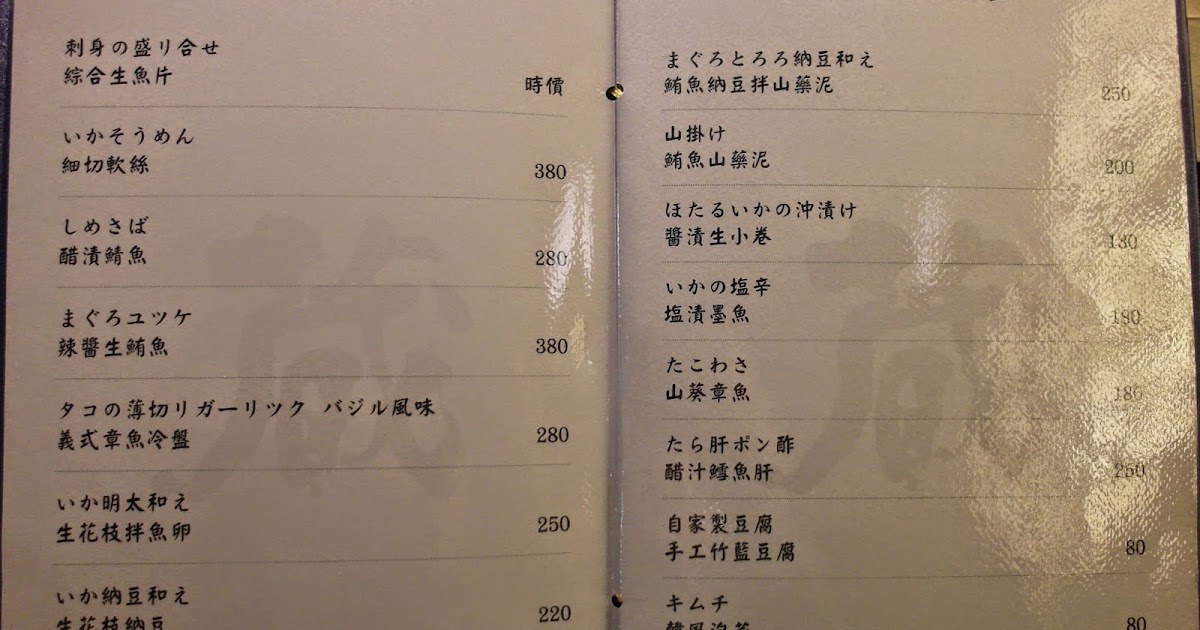 刺身の盛り合せ
綜合生魚片
時價
いかそうめん
細切軟絲
380
しめさば
醋漬鯖魚
280
まぐろユツケ
辣醬生鮪魚
380
タコの薄切リガーリツク バジル風味
義式章魚冷盤
280
いか明太和え
生花枝拌魚卵
250
いか納豆和え
生花枝納豆
220
まぐろとろろ納豆和え
鮪魚納豆拌山藥泥
250
山掛け
鮪魚山藥泥
200
ほたるいかの沖漬け
醬漬生小卷
180
いかの塩辛
塩漬墨魚
180
たこわさ
山葵章魚
180
たら肝ポン酢
醋汁鱈魚肝
250
自家製豆腐
手工竹籃豆腐
80
キムチ
韓風泡菜
80